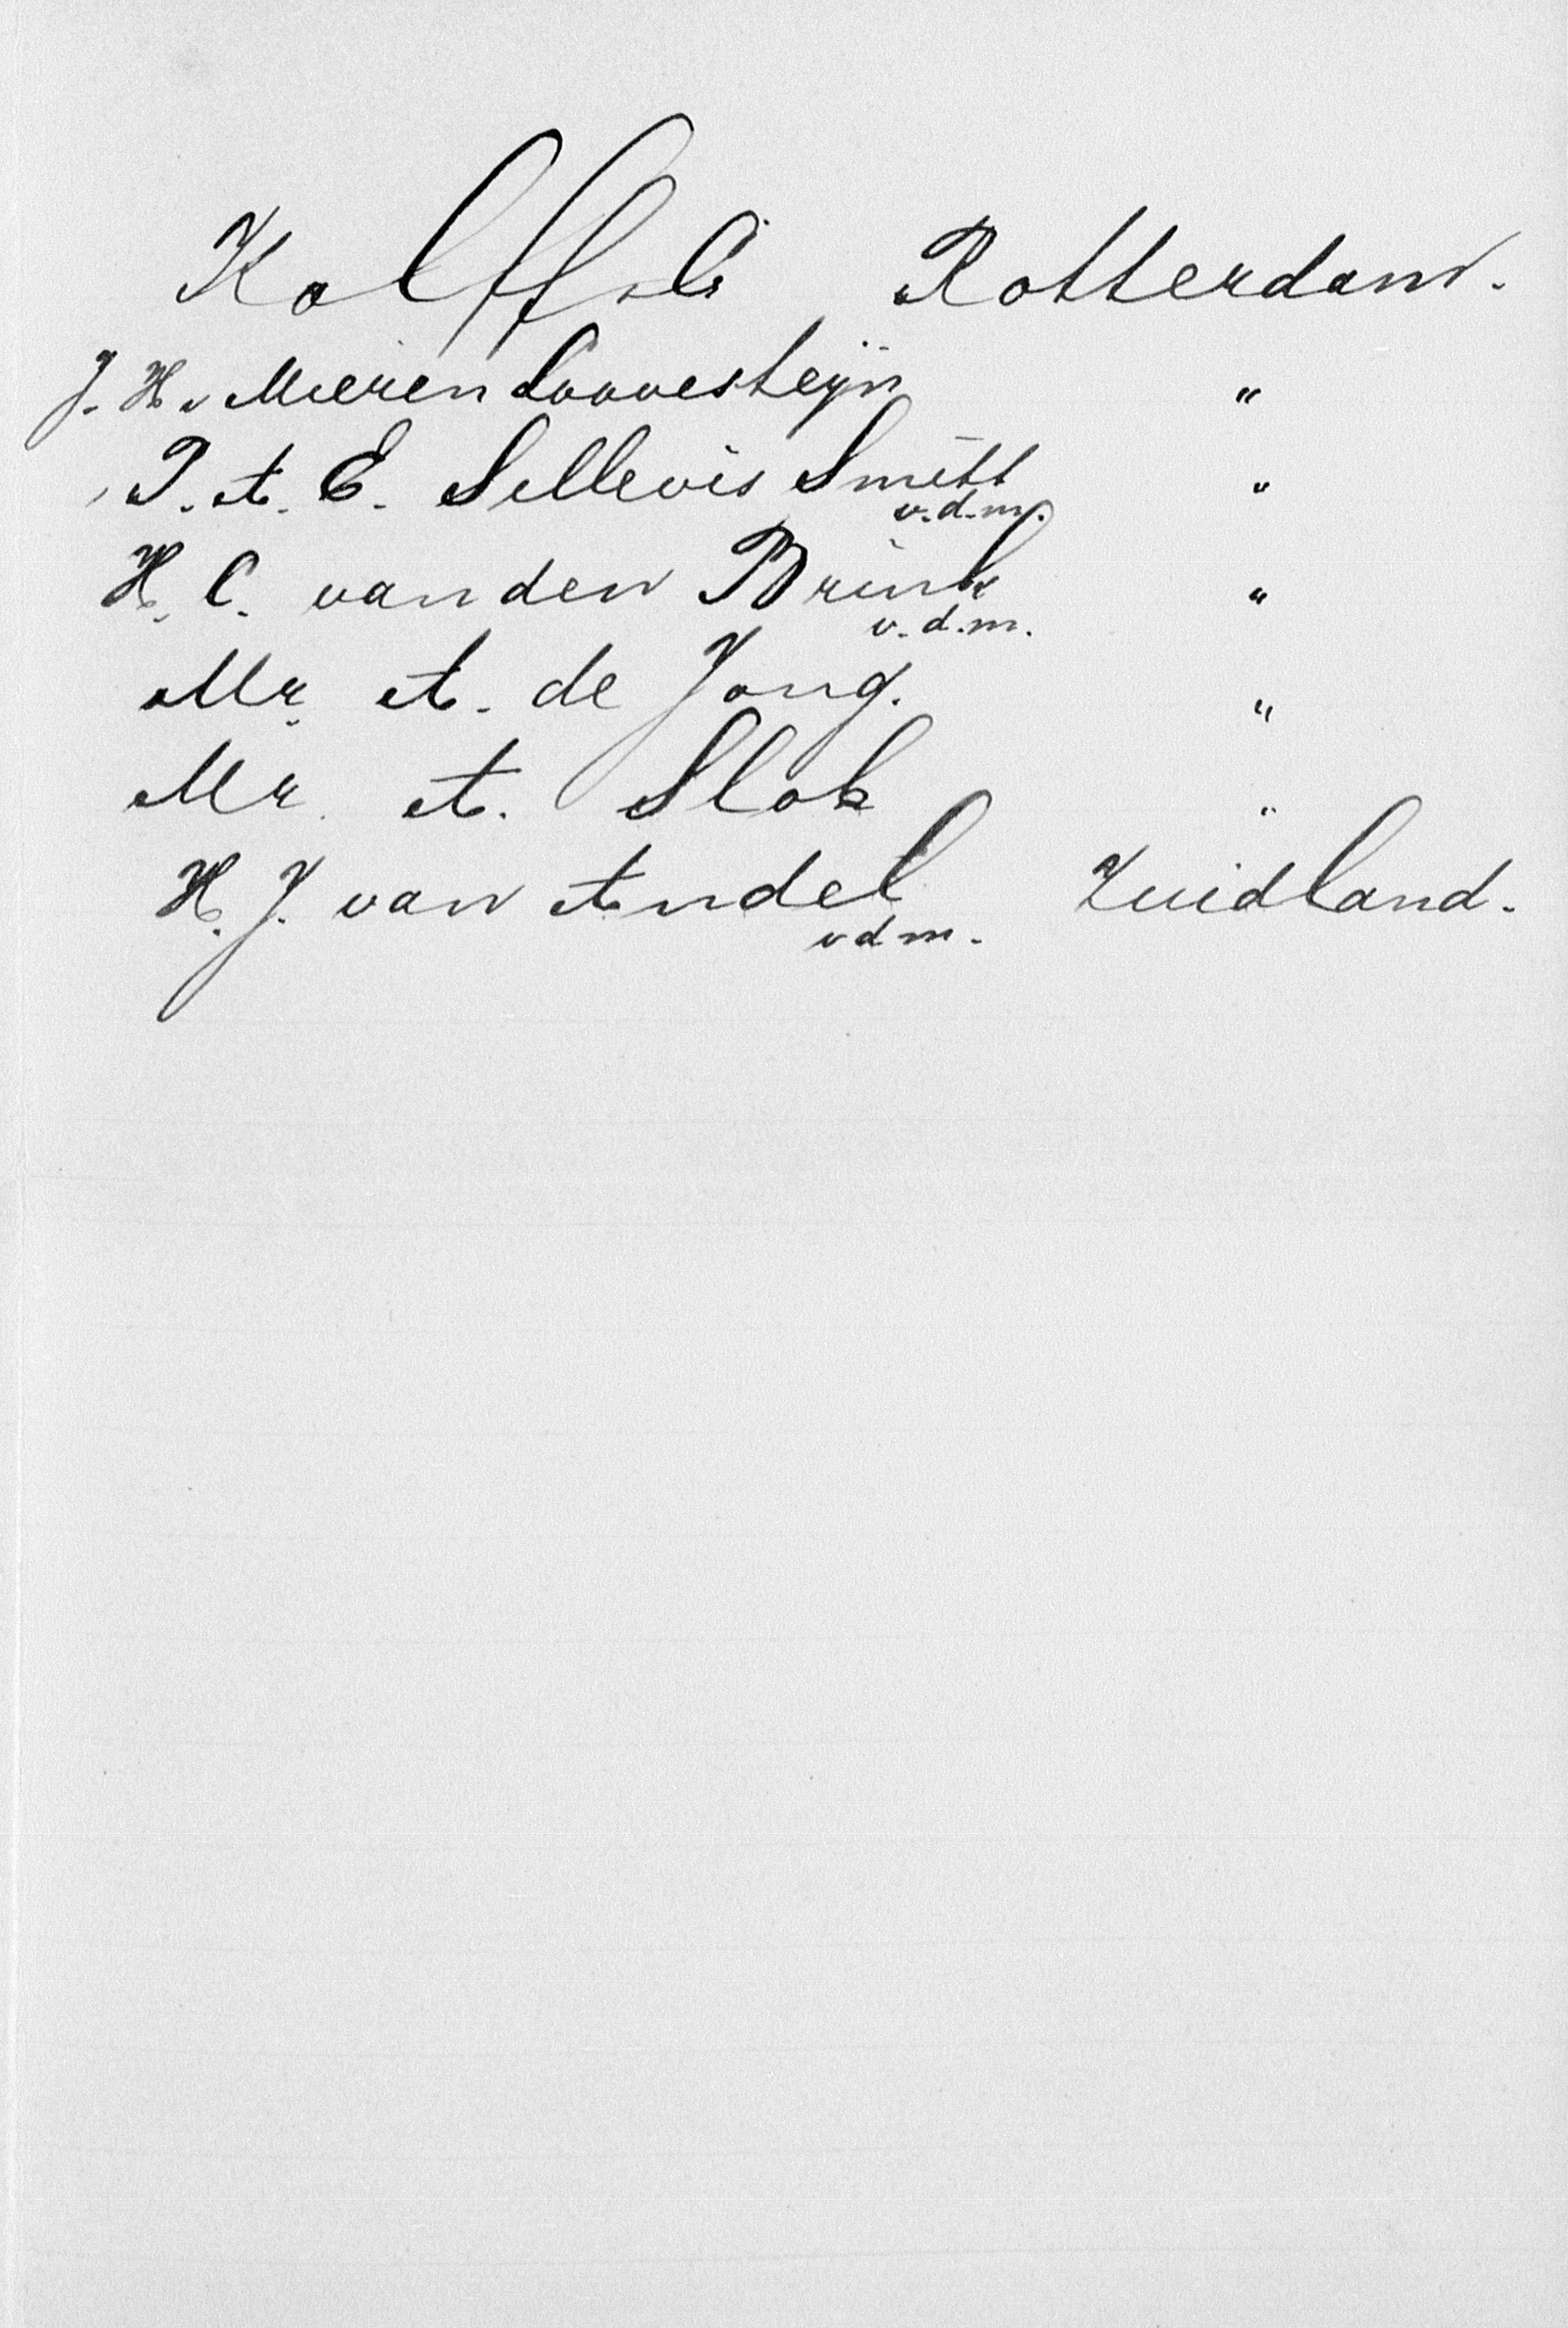 Kolff. Rotterdam.
J. H. v Mieren Loovesteijn "
P. A. E. Sillevis Smitt "
v.d.m.
H. C. van den Brink "
v.d.m.
Mr. A. de Jong. "
Mr. A. Slok "
H. J. van Andel Zuidland.
vdm.